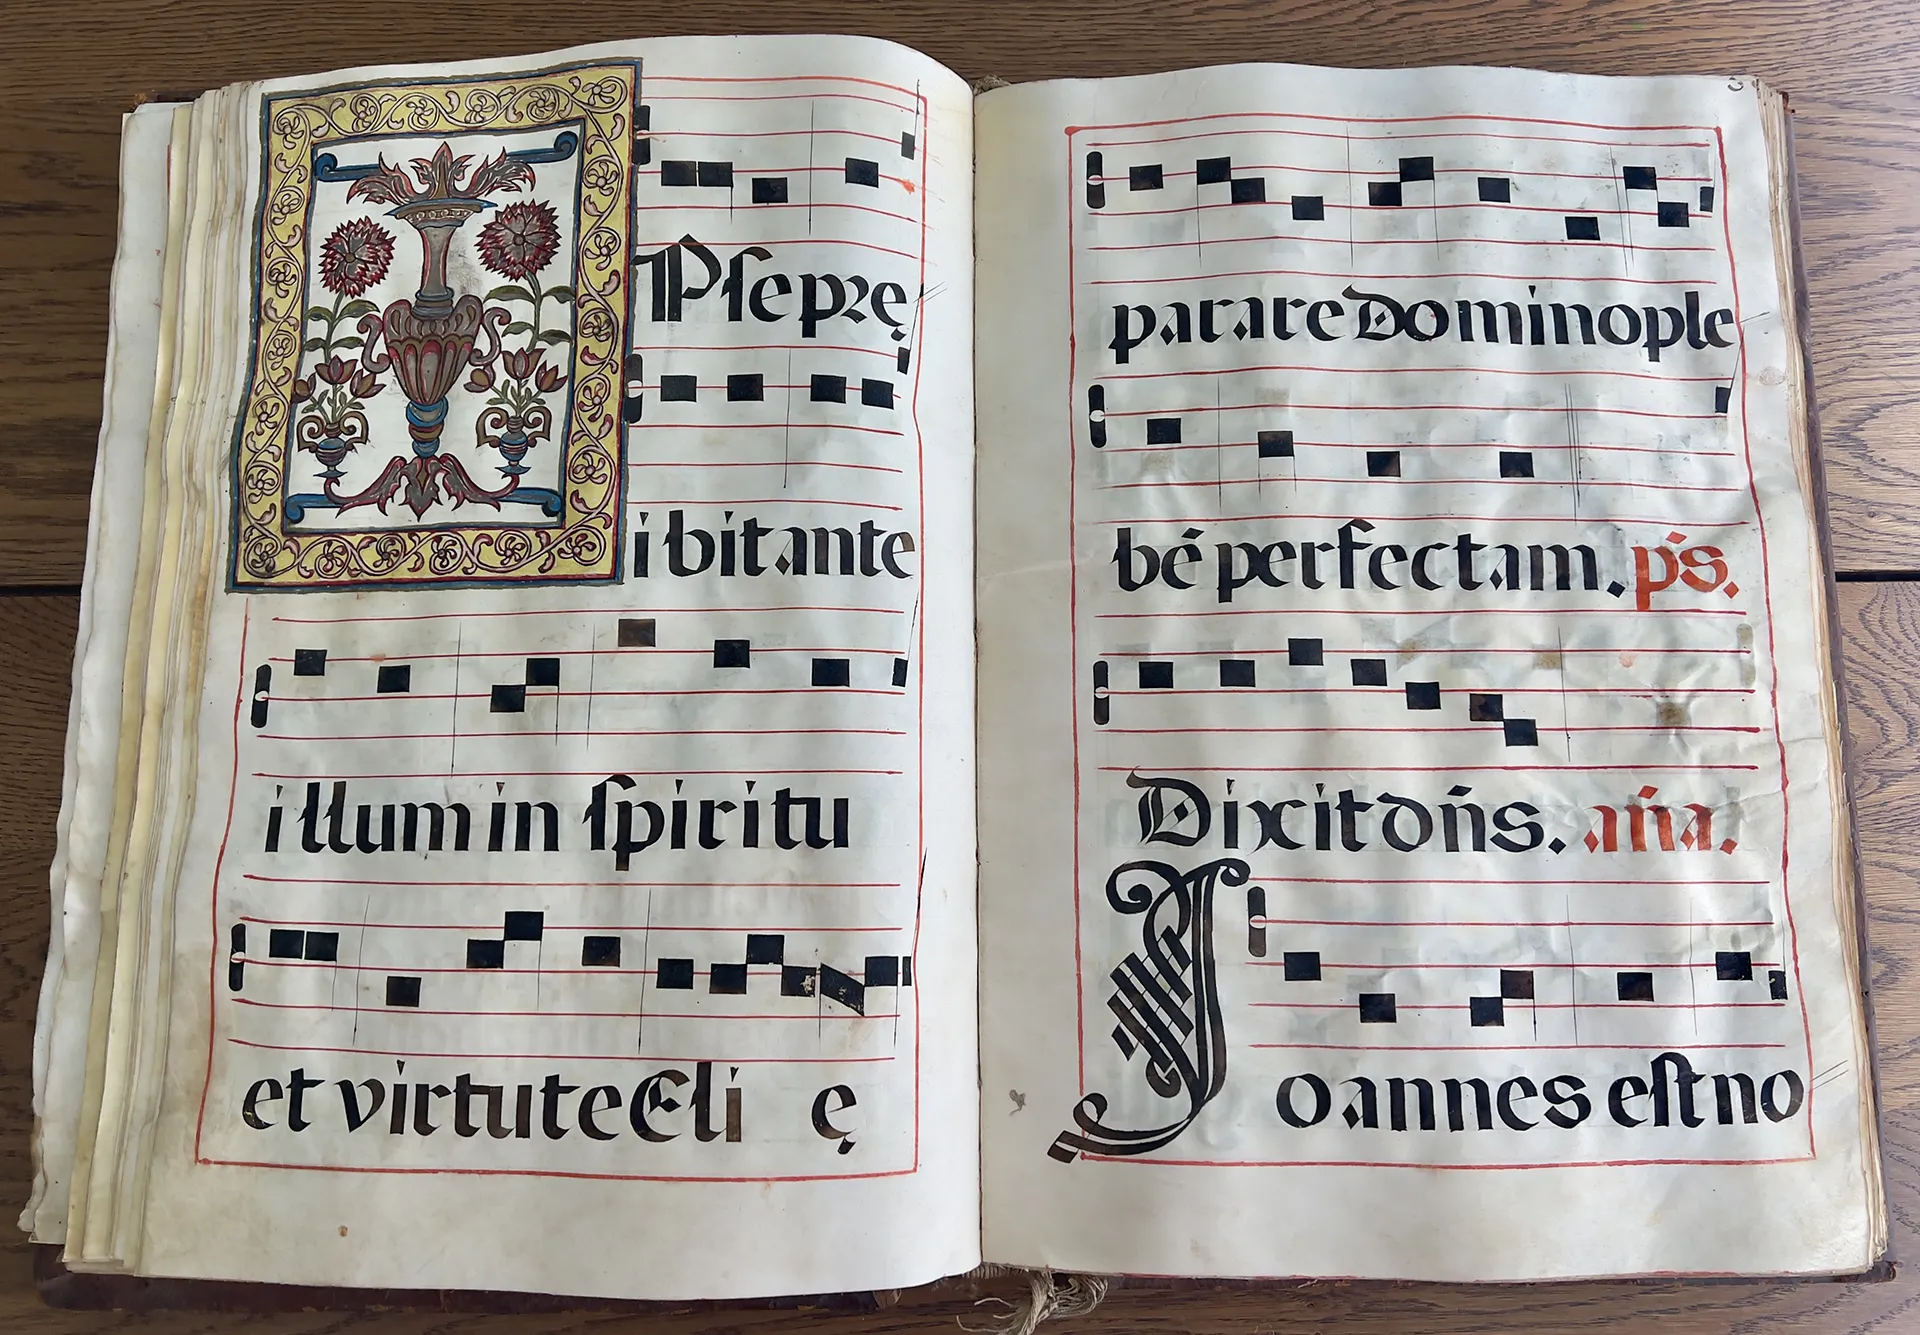 IPse prę
ibit ante
illum in spiritu
et virtute Eli ę
parare Domino ple
bē perfectam. p̄s.
Dixit dñs. aña.
Joannes est no